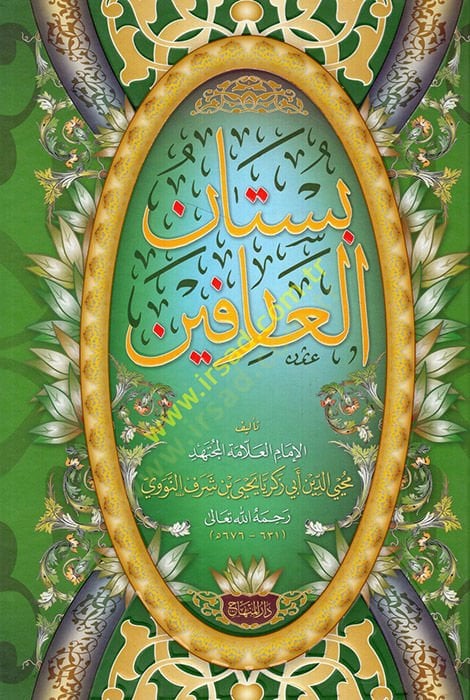 بستان
العارفين
تأليف
الإمام العلامة المجتهد
محيي الدين أبي زكريا يحيى بن شرف النووي
رحمه الله تعالى
(٦٣١ - ٦٧٦ هـ)
دار المنهاج
www.irsad.com.tr
www.irsad.com.tr